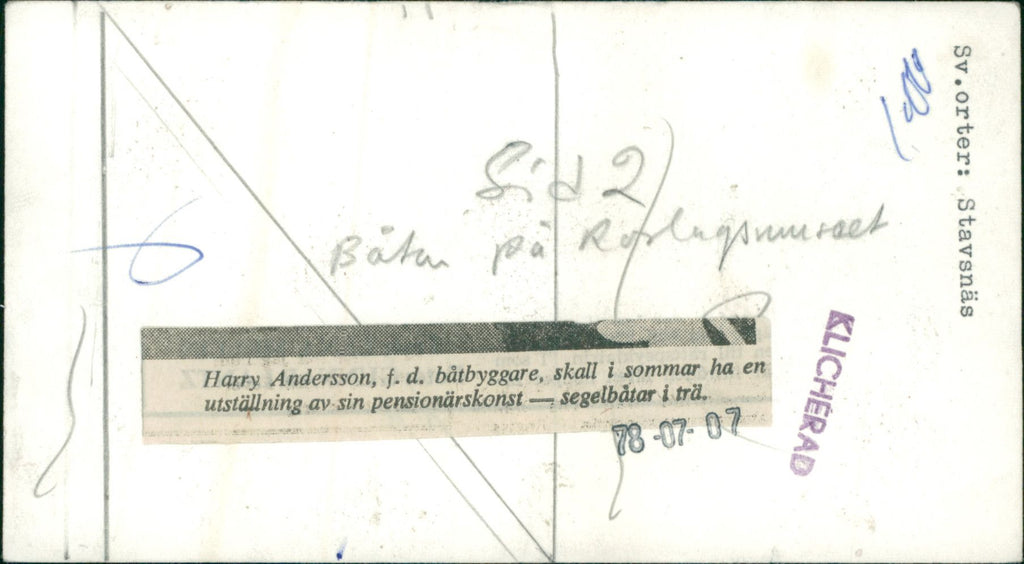 Sv.orter: Stavsnäs
Sid 2
Båten på Roslagsmuseet
Harry Andersson, f. d. båtbyggare, skall i sommar ha en
utställning av sin pensionärskonst — segelbåtar i trä.
78-07-07
KLICHERAD